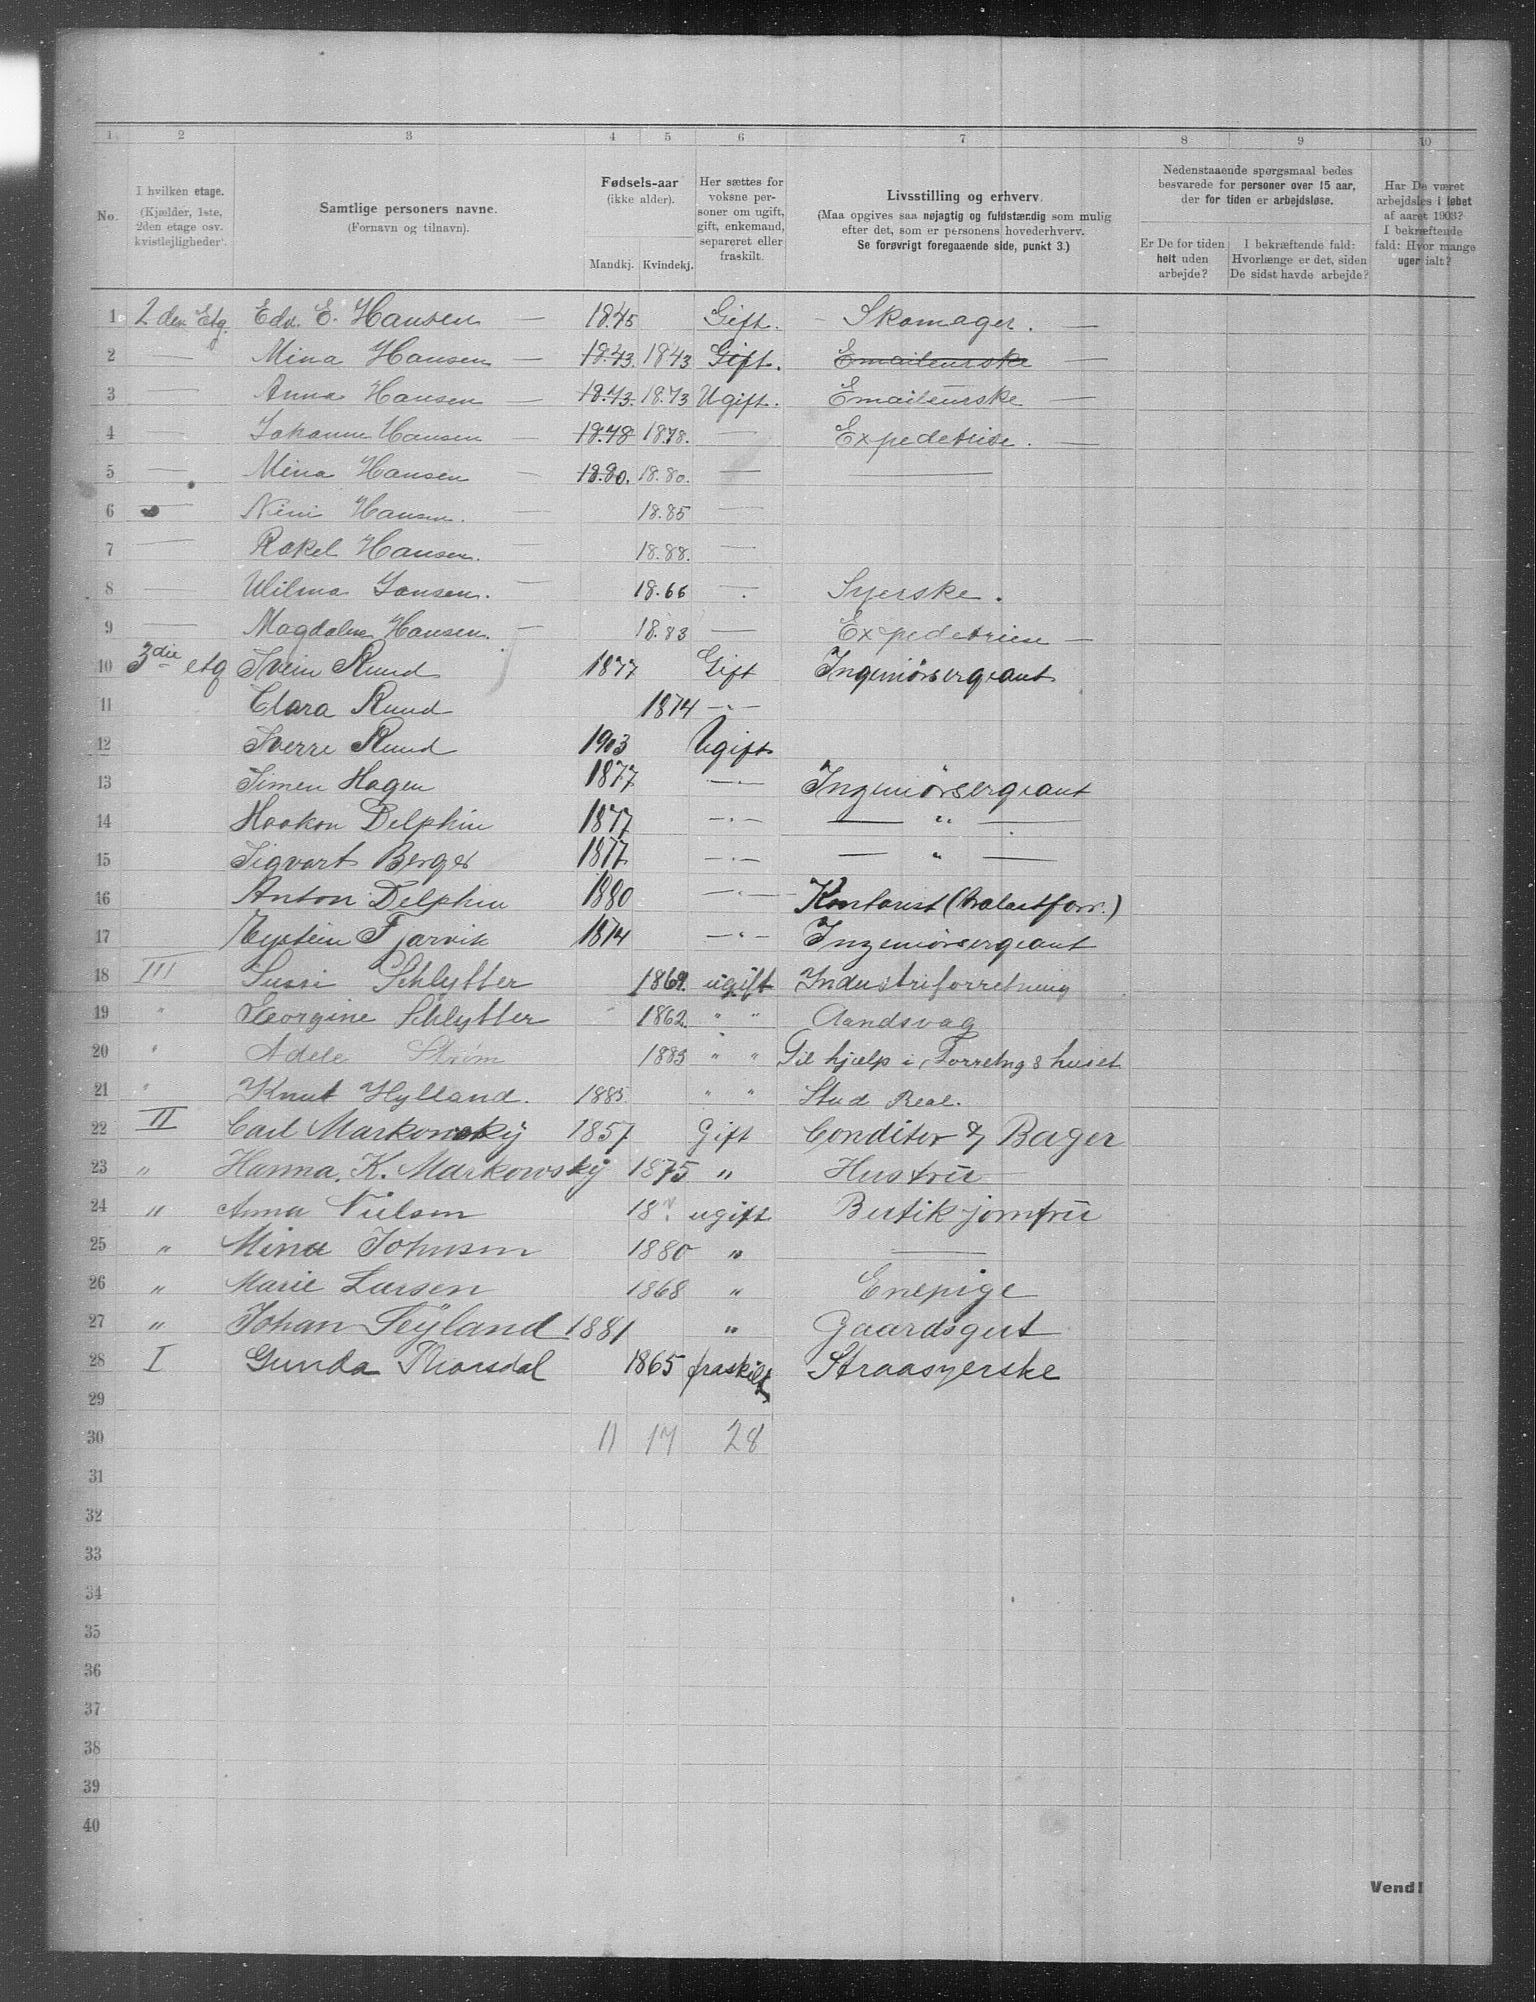 1 2 3 4 5 6 7 8 9 10
No.
I hvilken etage.
(Kjælder, 1ste,
2den etage osv.
kvistlejligheder).
Samtlige personers navne.
(Fornavn og tilnavn).
Fødsels-aar
(ikke alder).
Mandkj. Kvindekj.
Her sættes for
voksne per-
soner om ugift,
gift, enkemand,
separeret eller
fraskilt.
Livsstilling og erhverv.
(Maa opgives saa nøjagtig og fuldstændig som mulig
efter det, som er personens hovederhverv.
Se forøvrigt foregaaende side, punkt 3.)
Nedenstaaende spørgsmaal bedes
besvarede for personer over 15 aar,
der for tiden er arbejdsløse.
Er De for tiden
helt uden
arbejde?
I bekræftende fald:
Hvorlænge er det, siden
De sidst havde arbejde?
Har De været
arbejdsløs i løbet
af aaret 1903?
I bekræftende
fald: Hvor mange
uger ialt?
1 2den Etg. Edv. E. Hansen — 1845 Gift. - Skomager. —
2 — Mina Hansen — 1843. 1843 Gift. Emaileurske —
3 — Anna Hansen — 1873. 1873 Ugift. Emaileurske —
4 — Johanne Hansen — 1878 1878. — Expedetrise. —
5 — Mina Hansen — 1880. 1880. — —
6 — Nini Hansen. 1885 —
7 — Rakel Hansen. 1888. —
8 — Wilma Jansen. — 1866 . Syerske.
9 — Magdalene Hansen. — 1883 — Expedetriese —
10 3die etg Svein Ruud 1877 Gift Ingeniörsergeant
11 Clara Ruud 1874 —"—
12 Sverre Ruud 1903 Ugift
13 Simen Hagen 1877 —"— Ingeniörsergeant
14 Haakon Delphin 1877 —"— — " —
15 Sigvart Berger 1877 —"— — " —
16 Anton Delphin 1880 —"— Kontorist
17 Eystein Fjarvik 1874 —"— Ingeniörsergeant
18 III Sussi Schlytter 1869. ugift Industriforretning
19 " Georgine Schlytter 1862. " " Aandsvag
20 " Adele Strøm 1883 " " Til hjælp i Forretng & huset
21 " Knut Hylland. 1885 " " Stud Real.
22 II Carl Markowsky 1857 Gift Conditor & Bager
23 " Hanna. K. Markowsky 1875 " Hustrü
24 " Anna Nielsen 18 ugift Butikjomfrü
25 " Mina Johnsen 1880 " —
26 " Marie Larsen 1868 " Enepige
27 " Johan Seÿland 1881 " Gaardsgut
28 I Gunda Thorsdal 1865 fraskilt Straasyerske
29
30 11 17 28
31
32
33
34
35
36
37
38
39
40
Vend!